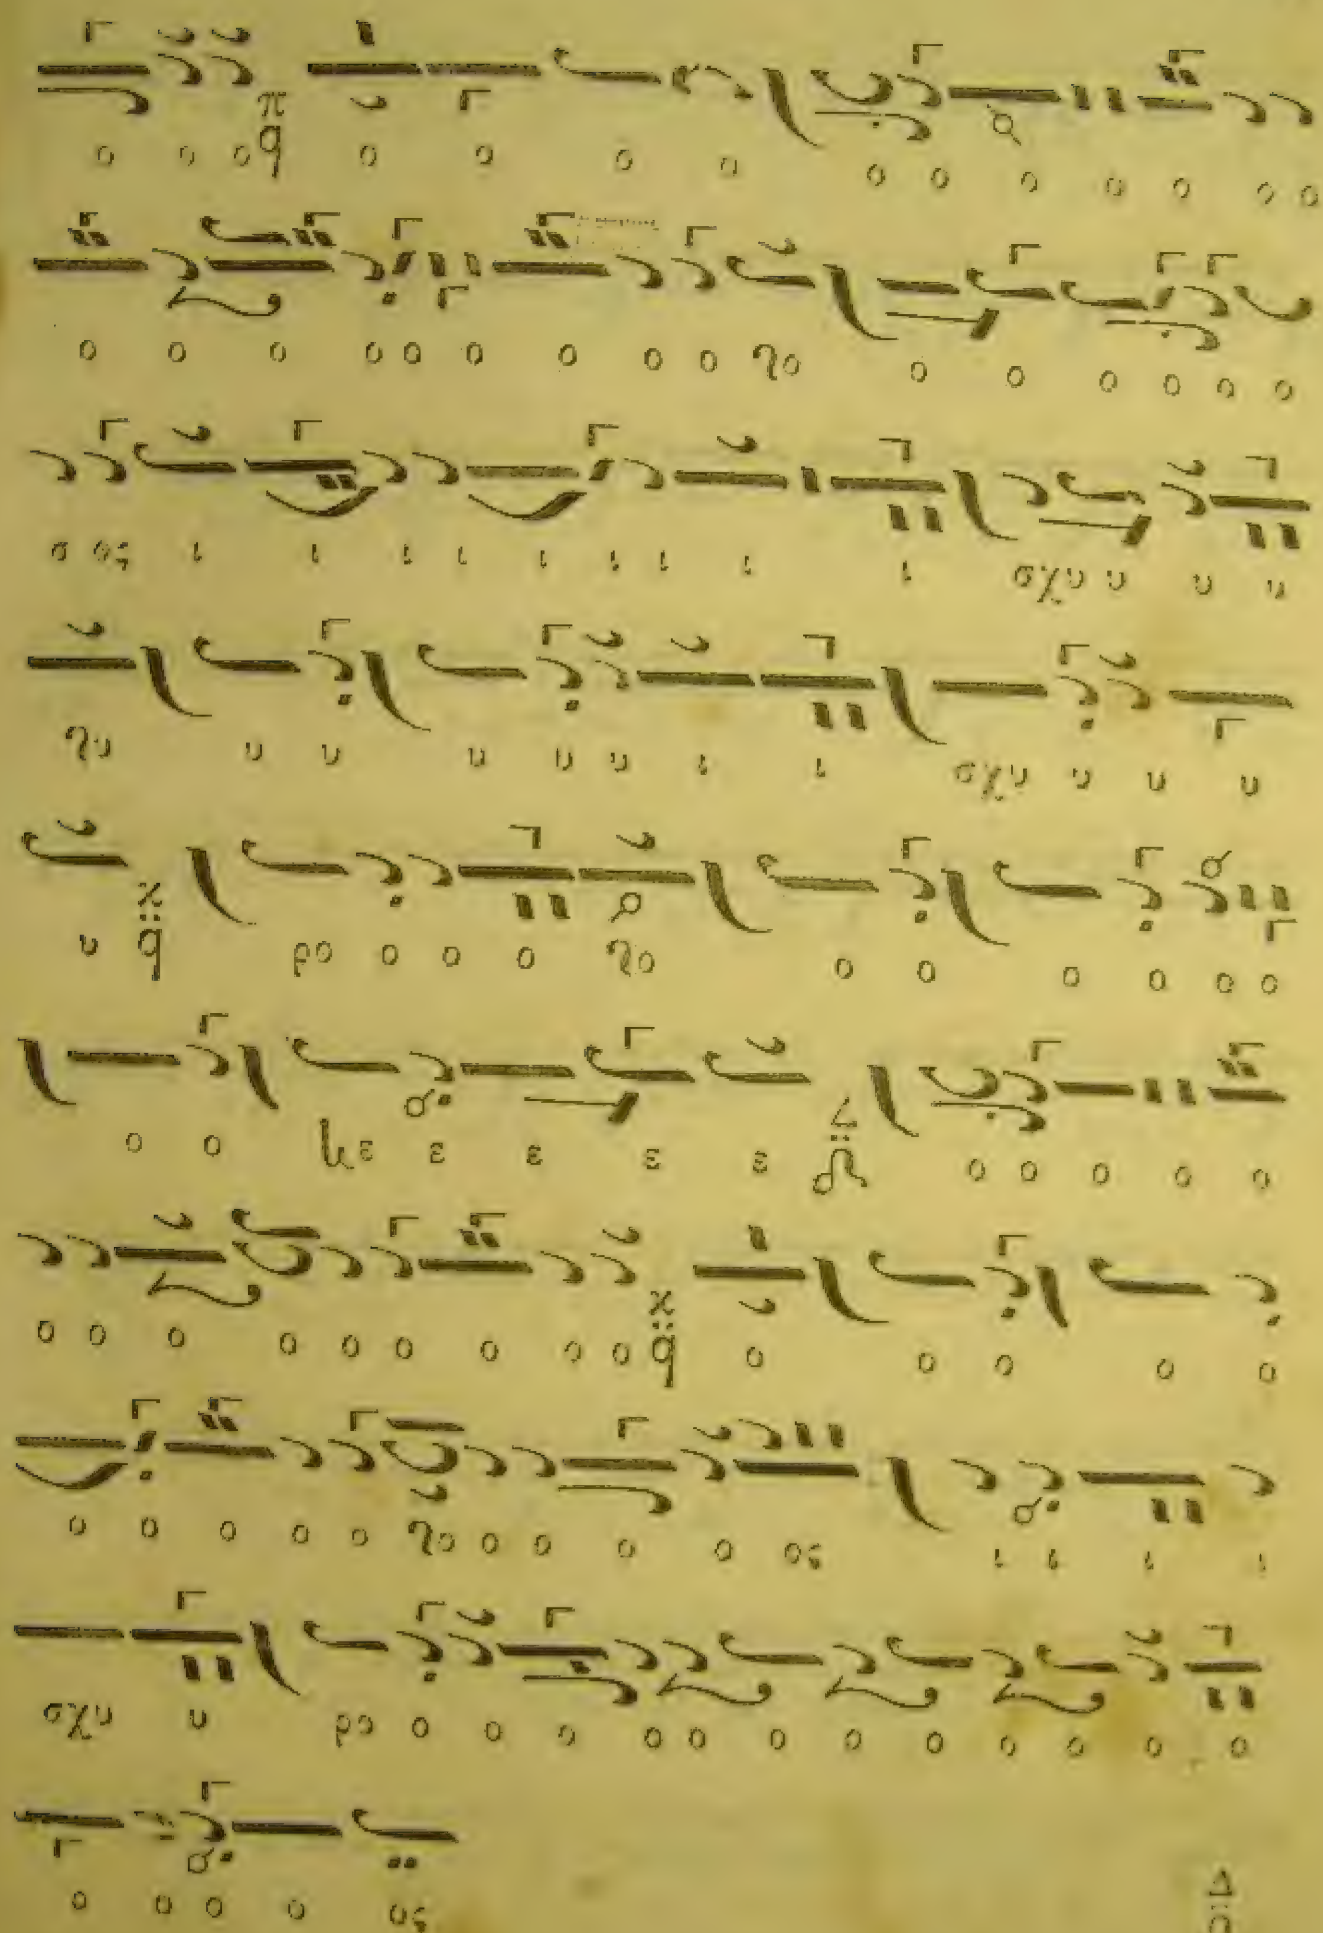 ο ο ο π q ο ο ο ο ο ο ο ο ο ο ο
ο ο ο ο ο ο ο ο ο νο ο ο ο ο ο ο
ο ος ι ι ι ι ι ι ι ι ι σχυ υ υ υ
νυ υ υ υ υ υ ι ι σχυ υ υ υ
υ χ q ρο ο ο ο νο ο ο ο ο ο ο
ο ο ε ε ε ε ο ο ο ο ο
ο ο ο ο ο ο ο ο ο χ q ο ο ο ο ο
ο ο ο ο ο νο ο ο ο ο ος ι ι ι ι
σχυ υ ρο ο ο ο ο ο ο ο ο ο ο ο ο
ο ο ο ο ος
Δ